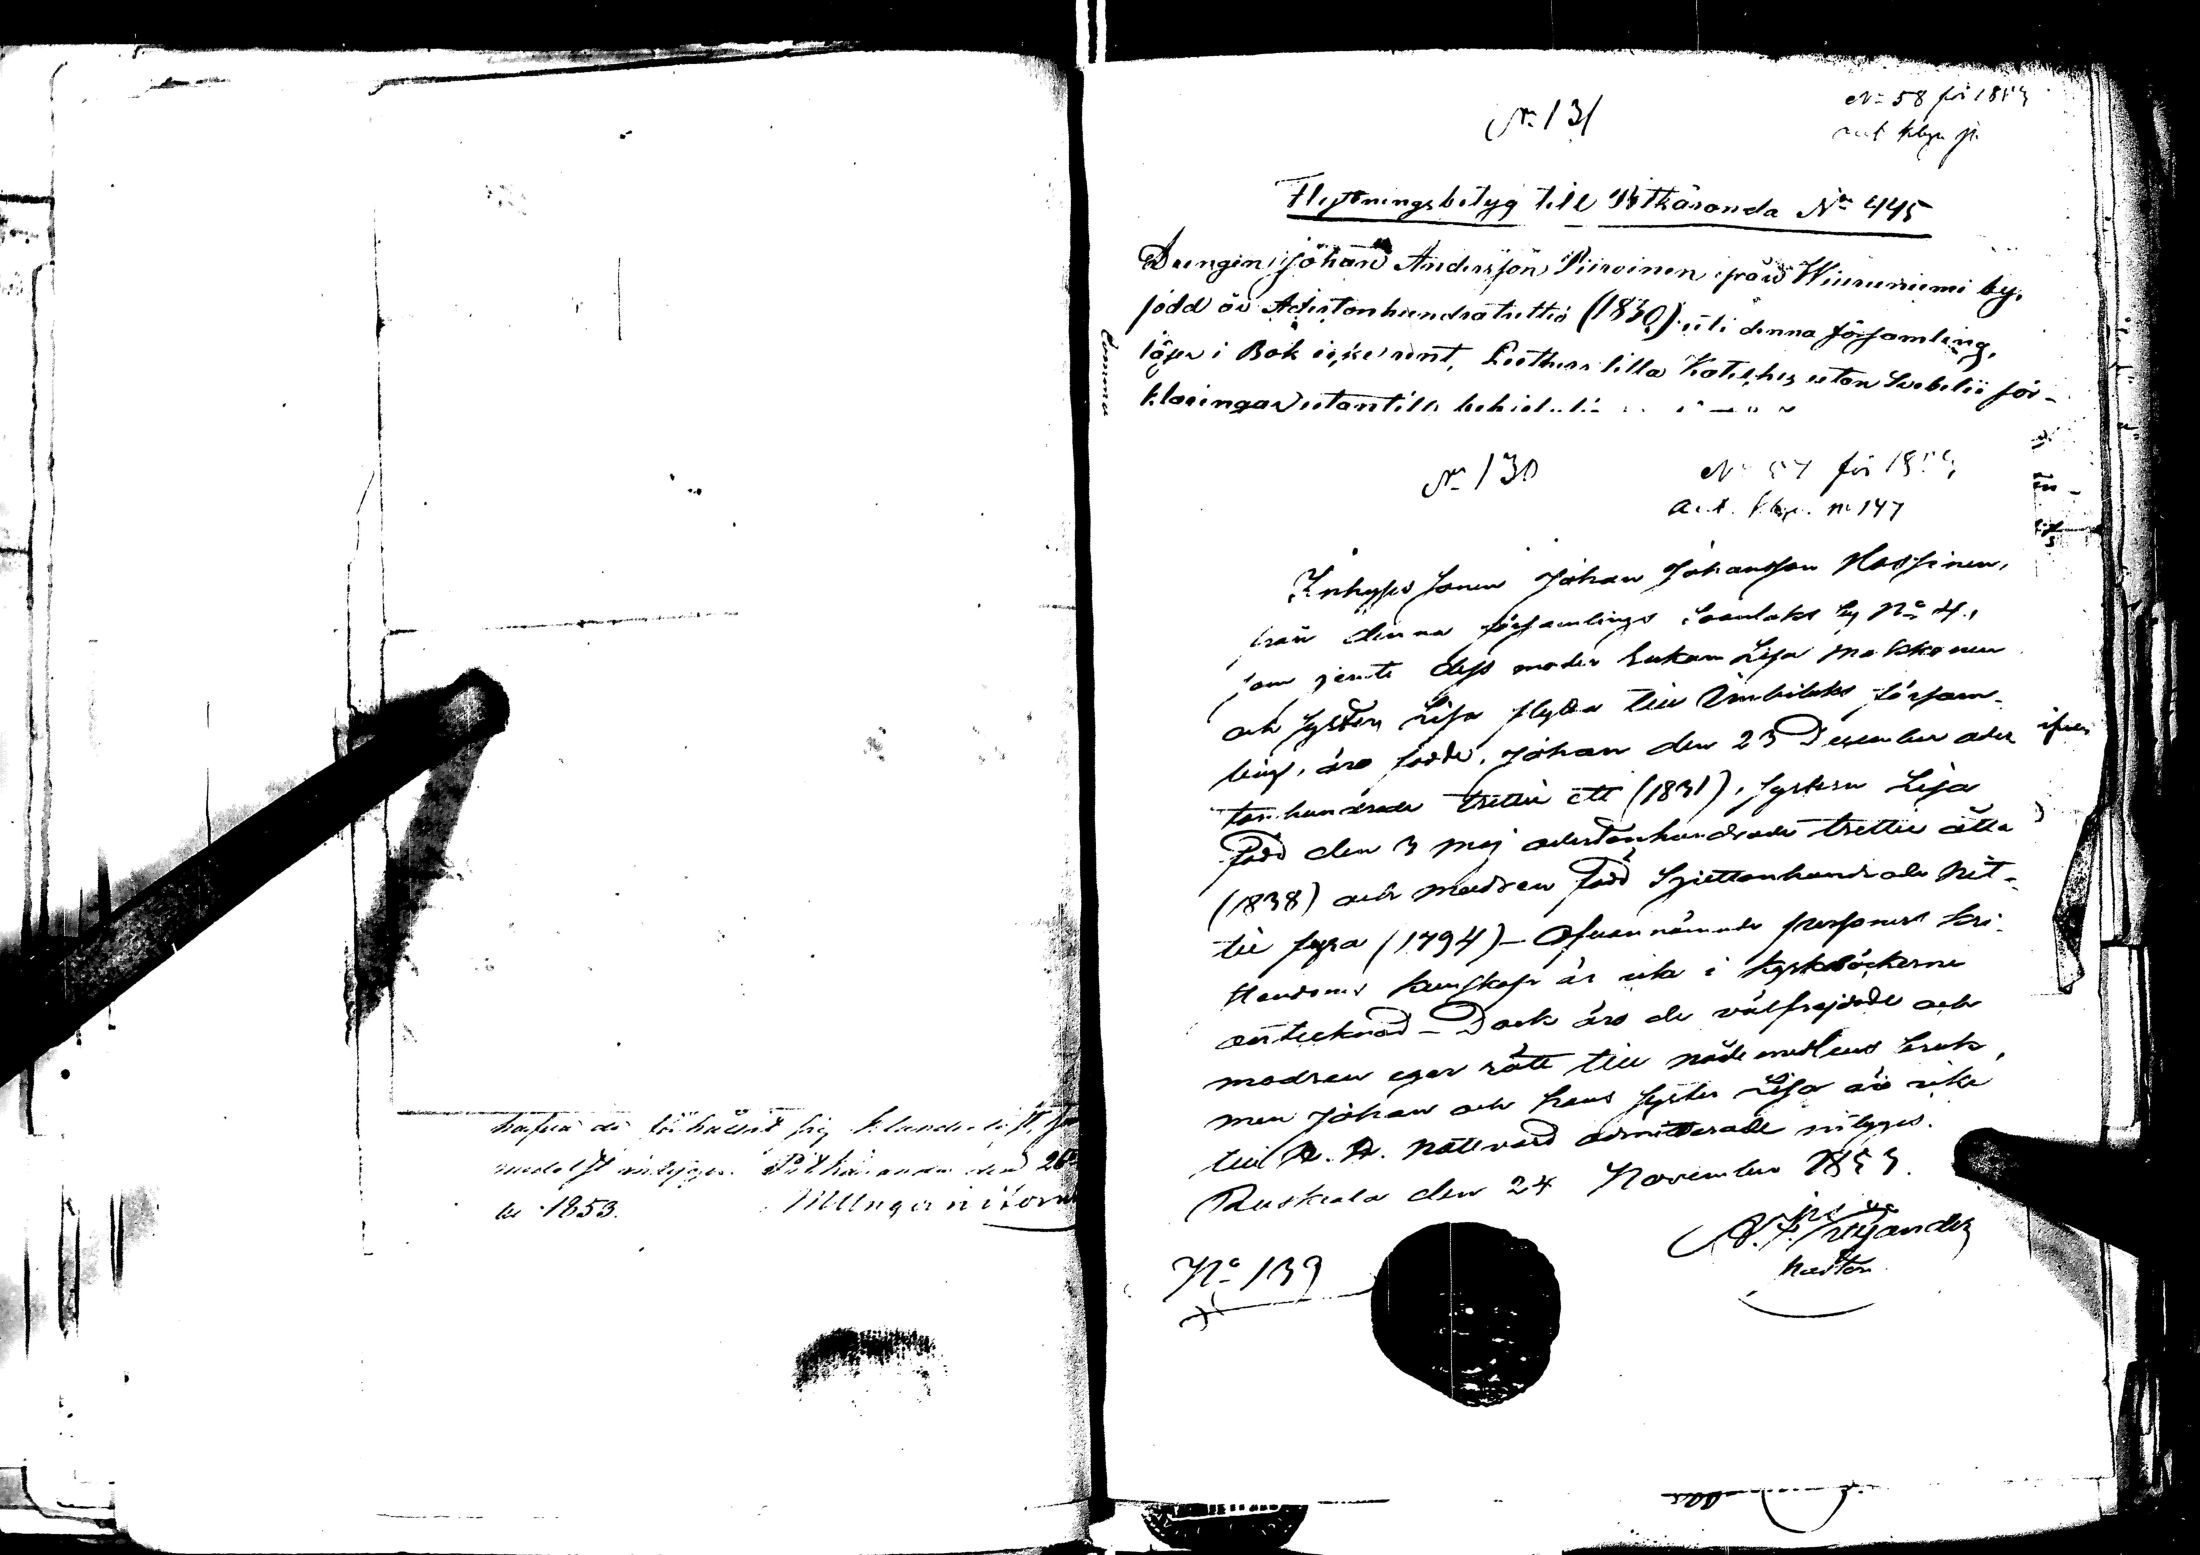 hafva de förhållit sig klanderlöst,
medelst intygar. Pitkäranda den 26
br 1853.
N 131
N 58 för 1853
Flyttningsbetyg till Pitkäranda No 445
Drengen Johan Andersson Piiroinen från Wiiruniemi by,
född år Adertonhundratrettio (1830) uti denna församling,
läser i Bok icke rent, Luthers lilla Kateches utan Svebelii för-
klaringar utantill
N 130
N 57 för 1853
act. n 147
Inhyses sonen Johan Johansson Hassinen,
från denna församlings by No 4,
som jemte dess moder Enkan Lisa Makkonen
och syster Lisa flytta till Imbilaks försam-
ling, äro födde, Johan den 23 December ader
tonhundrade trettio ett (1831), systern Lisa
född den 3 Maj adertonhundrade trettio åtta
(1838) och modren född Sjuttonhundrade Nit-
tio fyra (1794) – Ofvannämnde personers kri-
stendoms kunskap är icke i kyrkböckerne
antecknad – Dock äro de välfrejdade och
modren eger rätt till nådemedlens bruk,
men Johan och hans syster Lisa äro icke
till H. H. Nattvard admitterade intygas.
Ruskeala den 24 November 1853.
No 139
Pastor